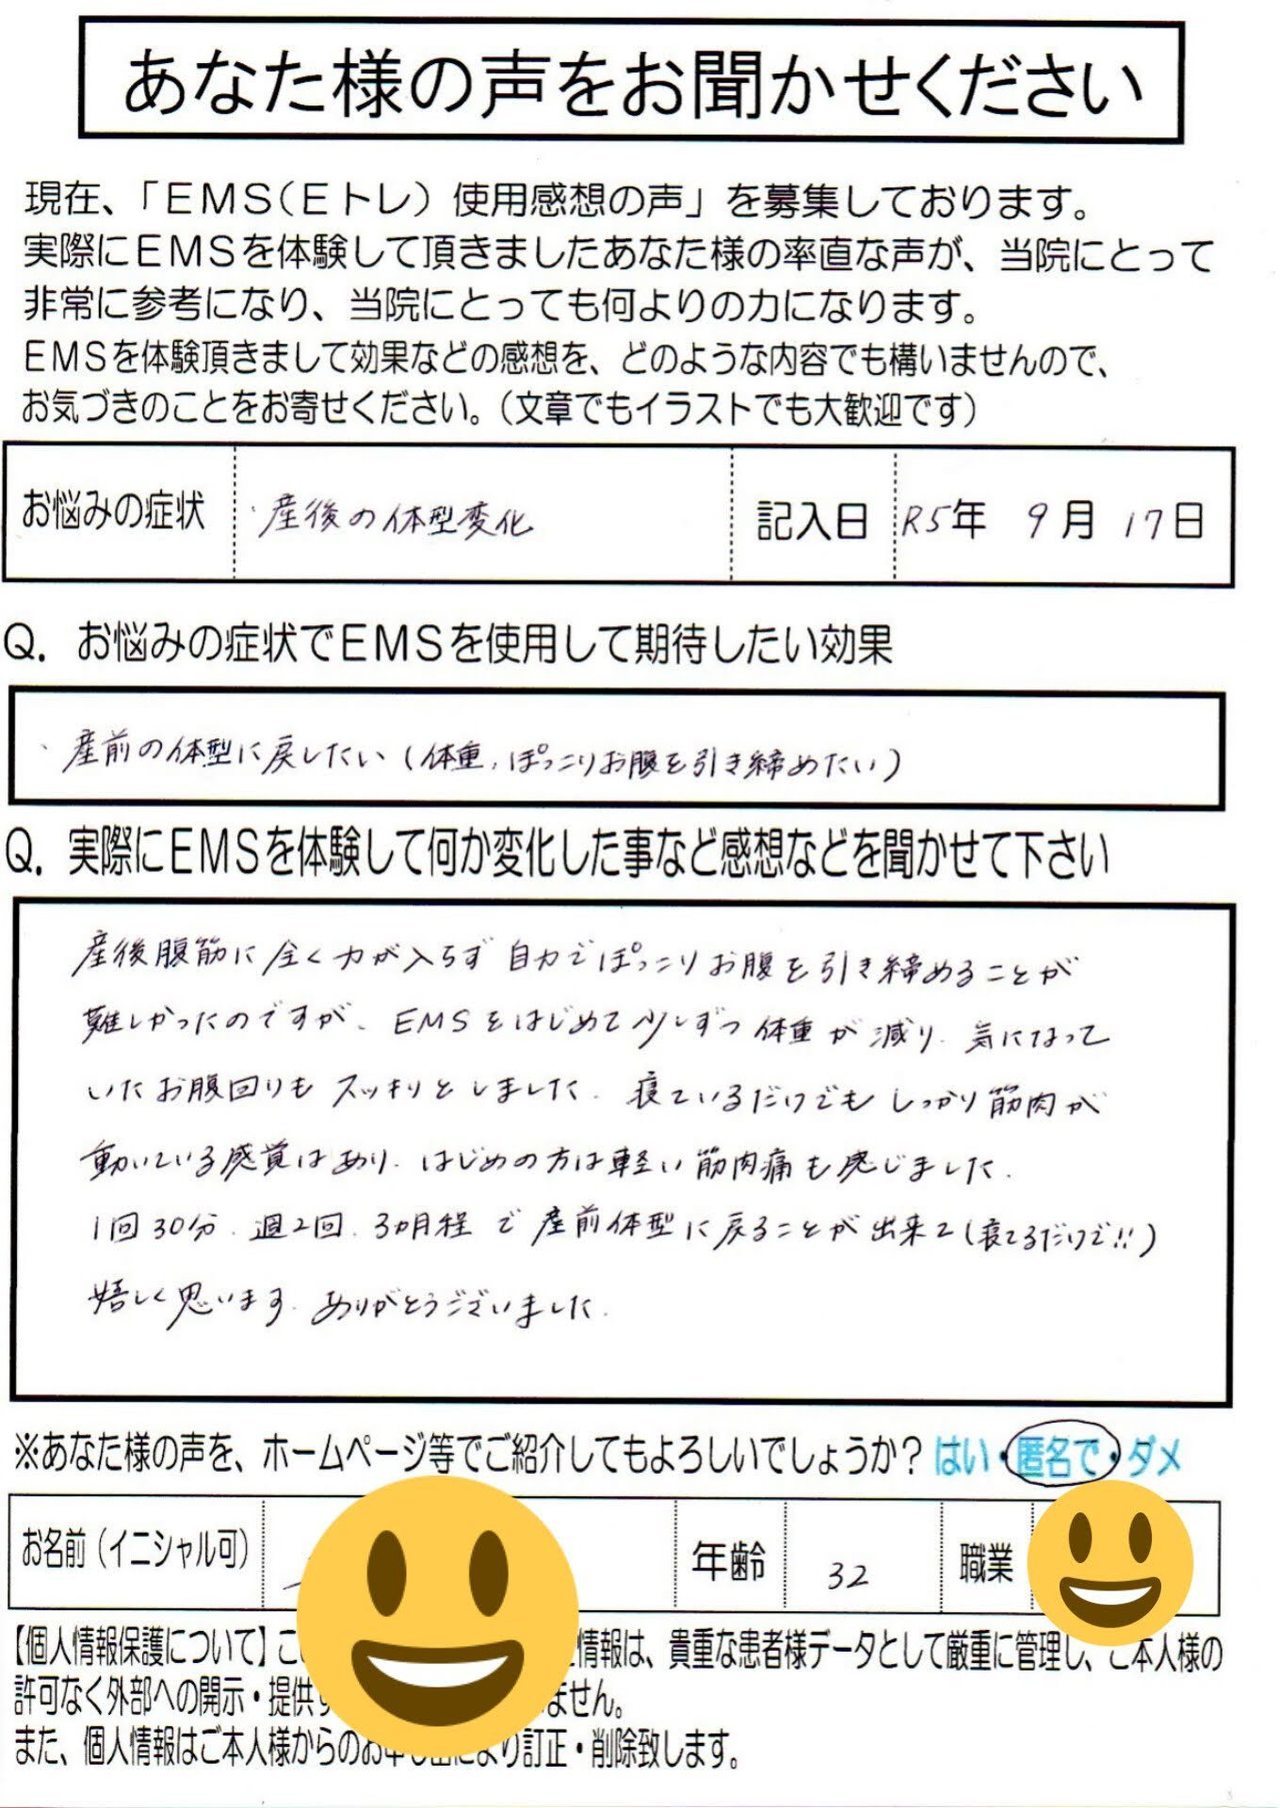 あなた様の声をお聞かせください
現在、「ＥＭＳ（Ｅトレ）使用感想の声」を募集しております。
実際にＥＭＳを体験して頂きましたあなた様の率直な声が、当院にとって
非常に参考になり、当院にとっても何よりの力になります。
ＥＭＳを体験頂きまして効果などの感想を、どのような内容でも構いませんので、
お気づきのことをお寄せください。（文章でもイラストでも大歓迎です）
お悩みの症状 ・産後の体型変化 記入日 R5年 9月 17日
Q. お悩みの症状でＥＭＳを使用して期待したい効果
・産前の体型に戻したい（体重、ぽっこりお腹を引き締めたい）
Q. 実際にＥＭＳを体験して何か変化した事など感想などを聞かせて下さい
産後腹筋に全く力が入らず自力でぽっこりお腹を引き締めることが
難しかったのですが、EMSをはじめて少しずつ体重が減り、気になって
いたお腹回りもスッキリとしました。寝ているだけでもしっかり筋肉が
動いている感覚はあり、はじめの方は軽い筋肉痛も感じました。
1回30分、週2回、3ヵ月程で産前体型に戻ることが出来て(寝てるだけで!!)
嬉しく思います。ありがとうございました。
※あなた様の声を、ホームページ等でご紹介してもよろしいでしょうか？ はい・匿名で・ダメ
お名前（イニシャル可） 年齢 32 職業
【個人情報保護について】こ 情報は、貴重な患者様データとして厳重に管理し、ご本人様の
許可なく外部への開示・提供 ません。
また、個人情報はご本人様からのお申し出により訂正・削除致します。